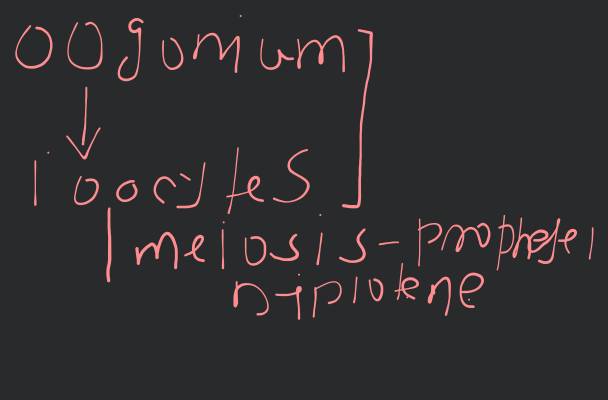 oogonium
↓
1° oocytes
meiosis - prophase 1
Diplotene